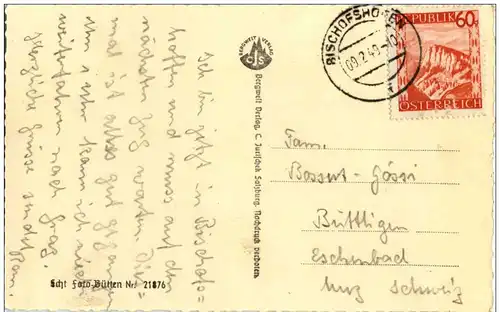 Ich bin jetzt in Bischofs=
hofen und muss auf den
nächsten Zug warten. Dies=
mal ist alles gut gegangen.
Um 1 Uhr kann ich
weiterfahren nach Graz.
Herzliche Grüsse sendet
BERGWELT VERLAG
CJS
Bergwelt Verlag, C. Jurischek Salzburg. Nachdruck verboten.
Echt Foto-Bütten Nr. 21876
BISCHOFSHOFEN
09.2.49
REPUBLIK 60g
ÖSTERREICH
Fam.
Bossert-Gössi
Büttligen
Eschenbach
Schweiz